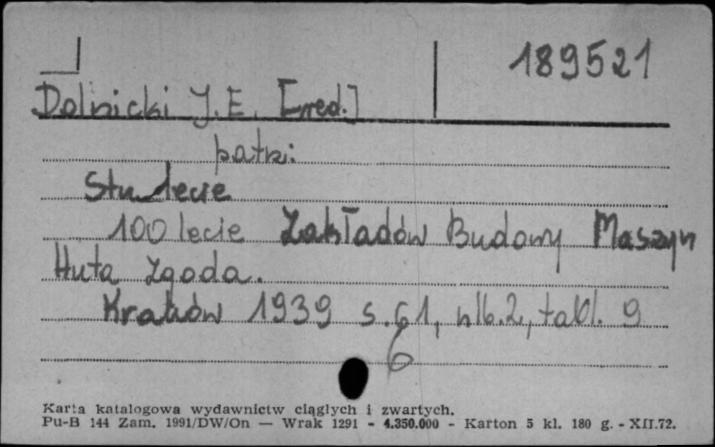 189521
Dolnicki J.E. [red.]
patrz:
Stulecie
100 lecie Zakładów Budowy Maszyn
Huta Zgoda.
Kraków 1939 s. 61, nlb. 2, tabl. 9
6
Karta katalogowa wydawnictw ciągłych i zwartych.
Pu-B 144 Zam. 1991/DW/On — Wrak 1291 - 4.350.000 - Karton 5 kl. 180 g. - XII.72.